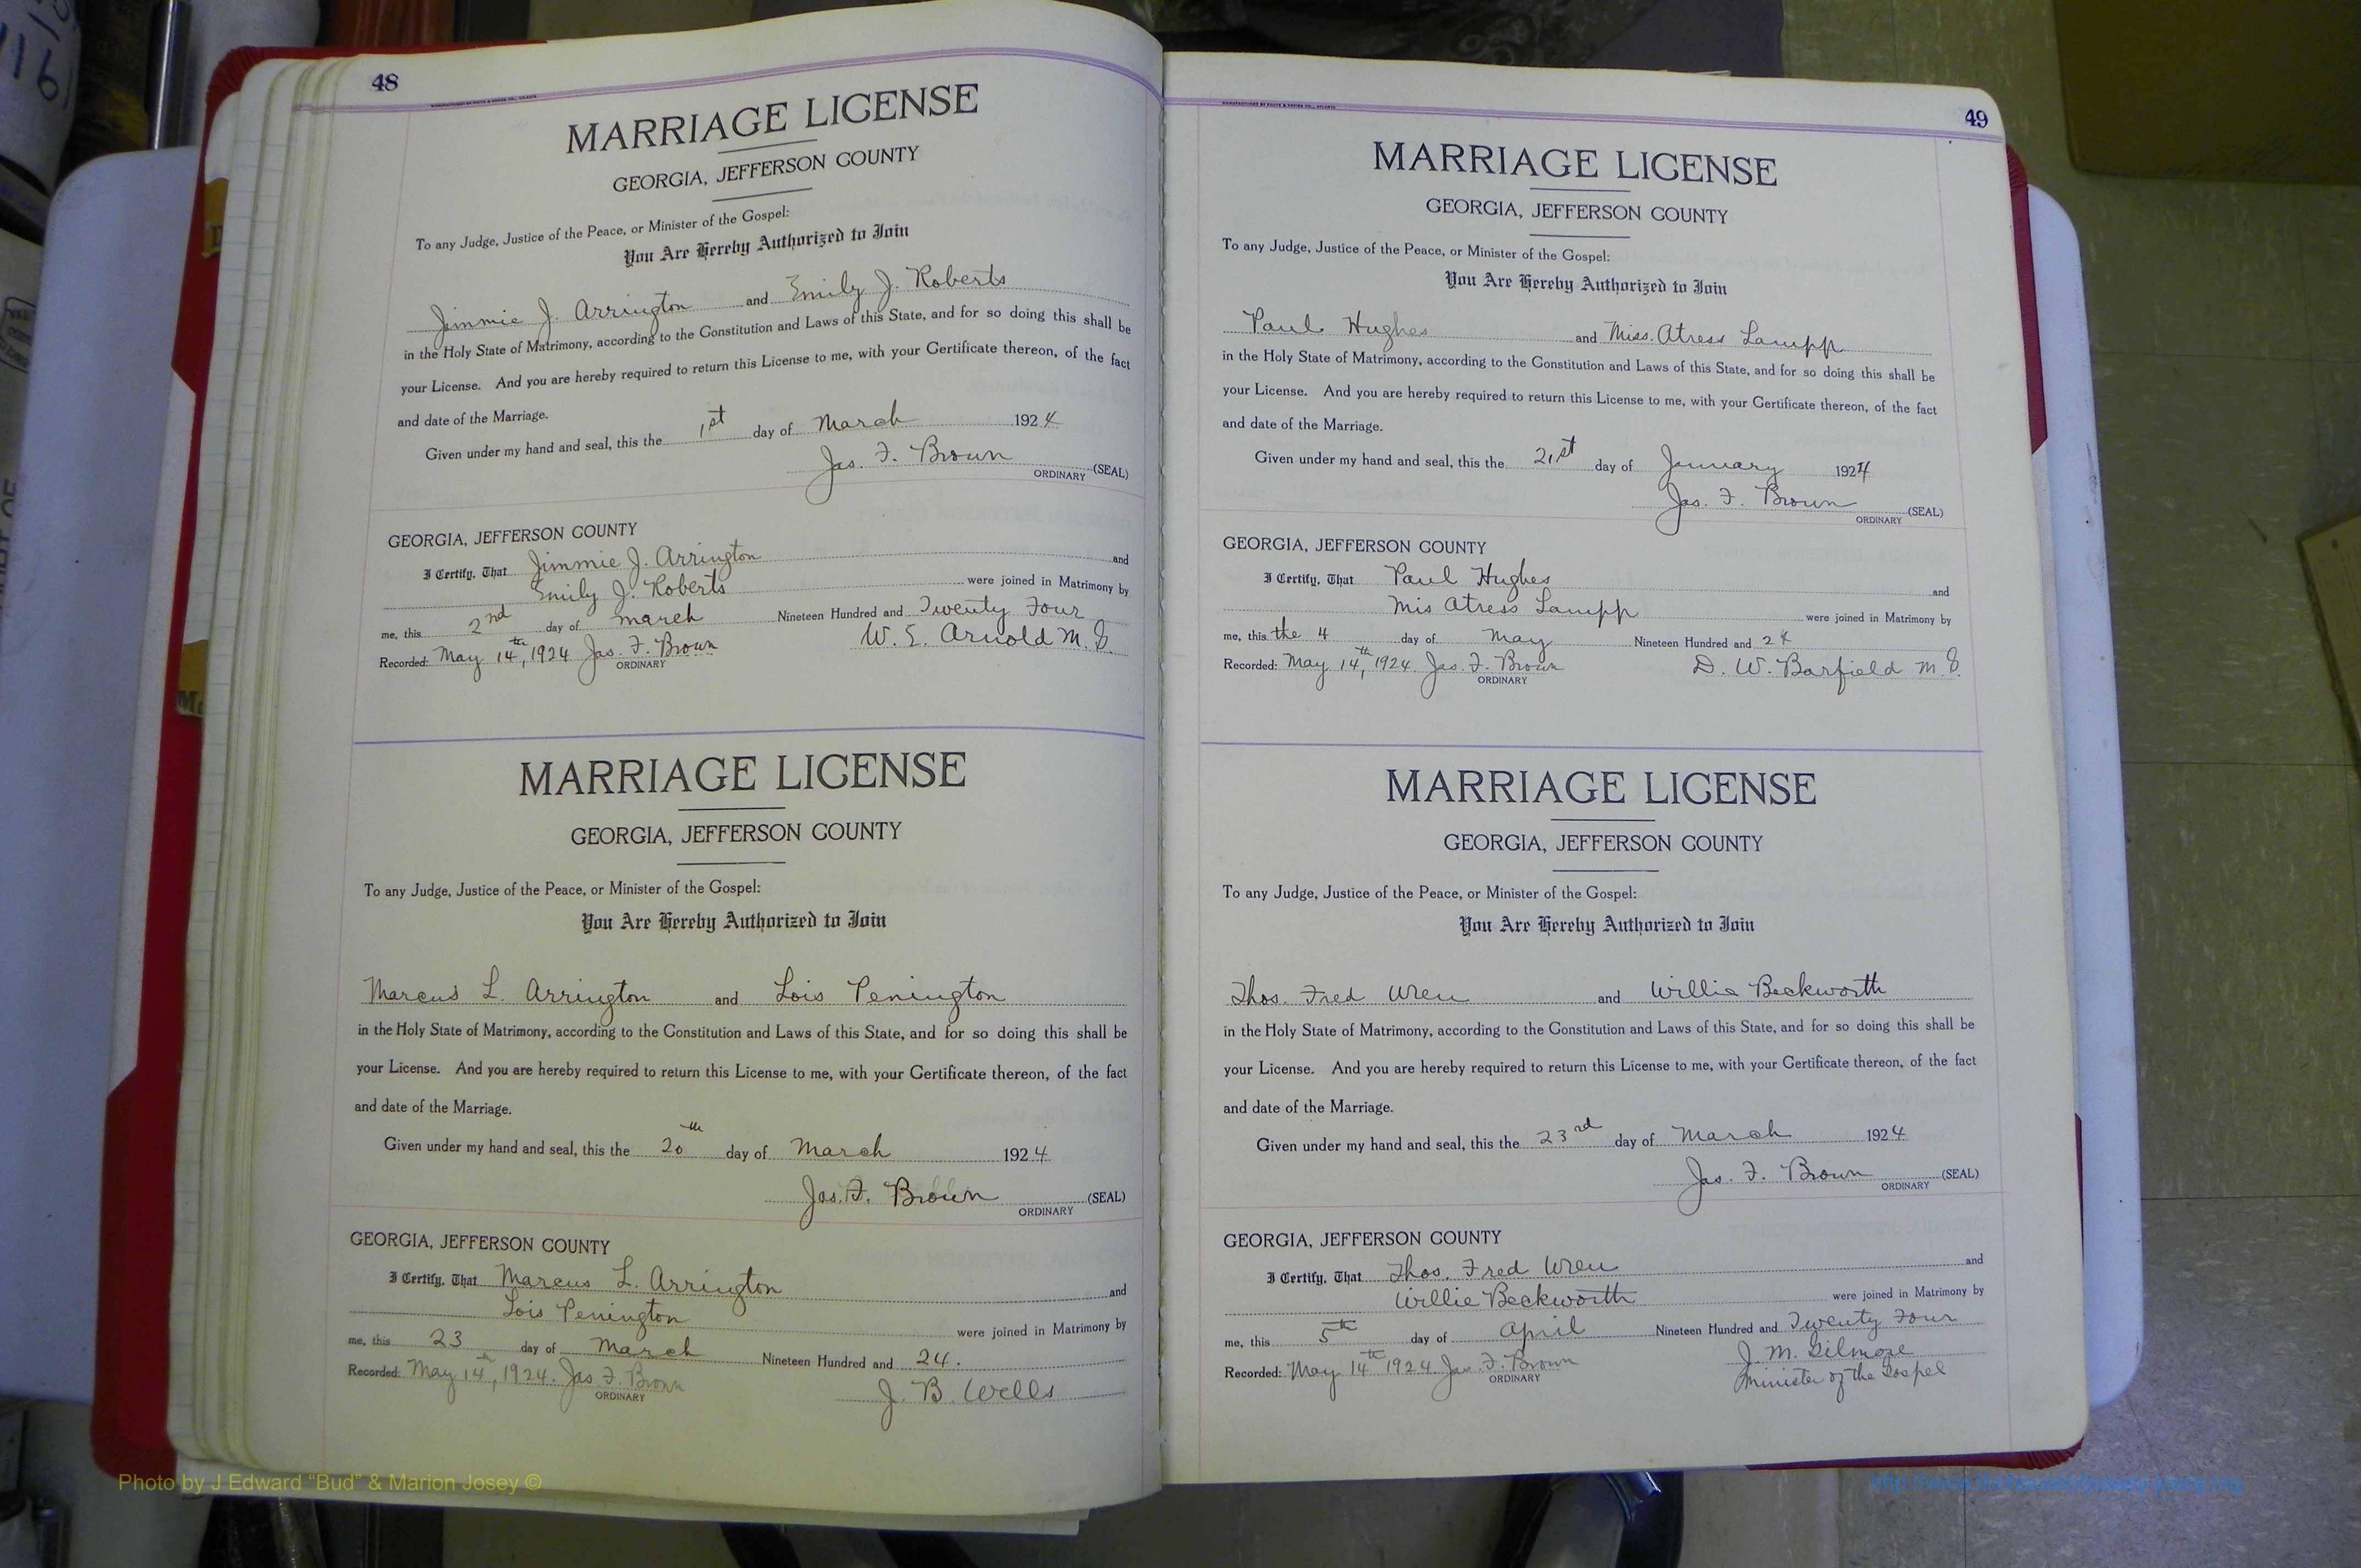 48
MARRIAGE LICENSE
GEORGIA, JEFFERSON COUNTY
To any Judge, Justice of the Peace, or Minister of the Gospel:
You Are Hereby Authorized to Join
Jimmie J. Arrington and Emily J. Roberts
in the Holy State of Matrimony, according to the Constitution and Laws of this State, and for so doing this shall be
your License. And you are hereby required to return this License to me, with your Certificate thereon, of the fact
and date of the Marriage.
Given under my hand and seal, this the 1st day of March 1924
Jas. F. Brown (SEAL)
ORDINARY
GEORGIA, JEFFERSON COUNTY
I Certify, That Jimmie J. Arrington and
Emily J. Roberts were joined in Matrimony by
me, this 2nd day of March Nineteen Hundred and Twenty Four
Recorded: May 14th, 1924 Jas. F. Brown W. E. Arnold M. G.
ORDINARY
MARRIAGE LICENSE
GEORGIA, JEFFERSON COUNTY
To any Judge, Justice of the Peace, or Minister of the Gospel:
You Are Hereby Authorized to Join
Marcus L. Arrington and Lois Penington
in the Holy State of Matrimony, according to the Constitution and Laws of this State, and for so doing this shall be
your License. And you are hereby required to return this License to me, with your Certificate thereon, of the fact
and date of the Marriage.
Given under my hand and seal, this the 20th day of March 1924
Jas. F. Brown (SEAL)
ORDINARY
GEORGIA, JEFFERSON COUNTY
I Certify, That Marcus L. Arrington and
Lois Penington were joined in Matrimony by
me, this 23 day of March Nineteen Hundred and 24.
Recorded: May 14th, 1924. Jas. F. Brown J. B. Wells
ORDINARY
49
MARRIAGE LICENSE
GEORGIA, JEFFERSON COUNTY
To any Judge, Justice of the Peace, or Minister of the Gospel:
You Are Hereby Authorized to Join
Paul Hughes and Miss. Atress Lampp
in the Holy State of Matrimony, according to the Constitution and Laws of this State, and for so doing this shall be
your License. And you are hereby required to return this License to me, with your Certificate thereon, of the fact
and date of the Marriage.
Given under my hand and seal, this the 21st day of January 1924
Jas. F. Brown (SEAL)
ORDINARY
GEORGIA, JEFFERSON COUNTY
I Certify, That Paul Hughes and
Mis Atress Lampp were joined in Matrimony by
me, this the 4 day of May Nineteen Hundred and 24
Recorded: May 14th, 1924. Jas. F. Brown D. W. Barfield M. G.
ORDINARY
MARRIAGE LICENSE
GEORGIA, JEFFERSON COUNTY
To any Judge, Justice of the Peace, or Minister of the Gospel:
You Are Hereby Authorized to Join
Thos. Fred Wren and Willie Beckworth
in the Holy State of Matrimony, according to the Constitution and Laws of this State, and for so doing this shall be
your License. And you are hereby required to return this License to me, with your Certificate thereon, of the fact
and date of the Marriage.
Given under my hand and seal, this the 23rd day of March 1924
Jas. F. Brown (SEAL)
ORDINARY
GEORGIA, JEFFERSON COUNTY
I Certify, That Thos. Fred Wren and
Willie Beckworth were joined in Matrimony by
me, this 5th day of April Nineteen Hundred and Twenty Four
J. M. Gilmore
Recorded: May 14th 1924. Jas. F. Brown Minister of the Gospel
ORDINARY
Photo by J Edward “Bud” & Marion Josey ©